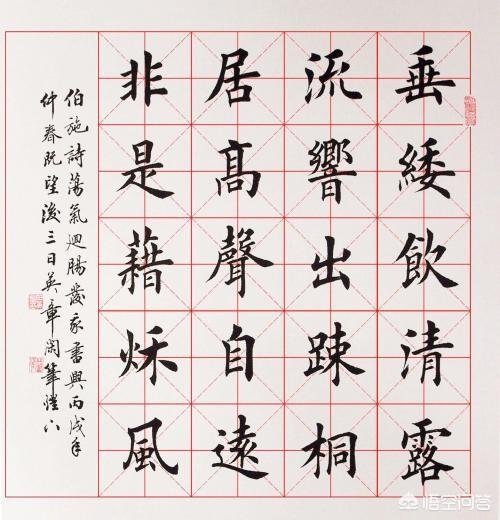 垂緌飲清露
流響出踈桐
居髙聲自遠
非是藉秌風
伯施詩蕩氣迴腸發我書興丙戌年
仲春既望後三日英章閑筆
悟空问答